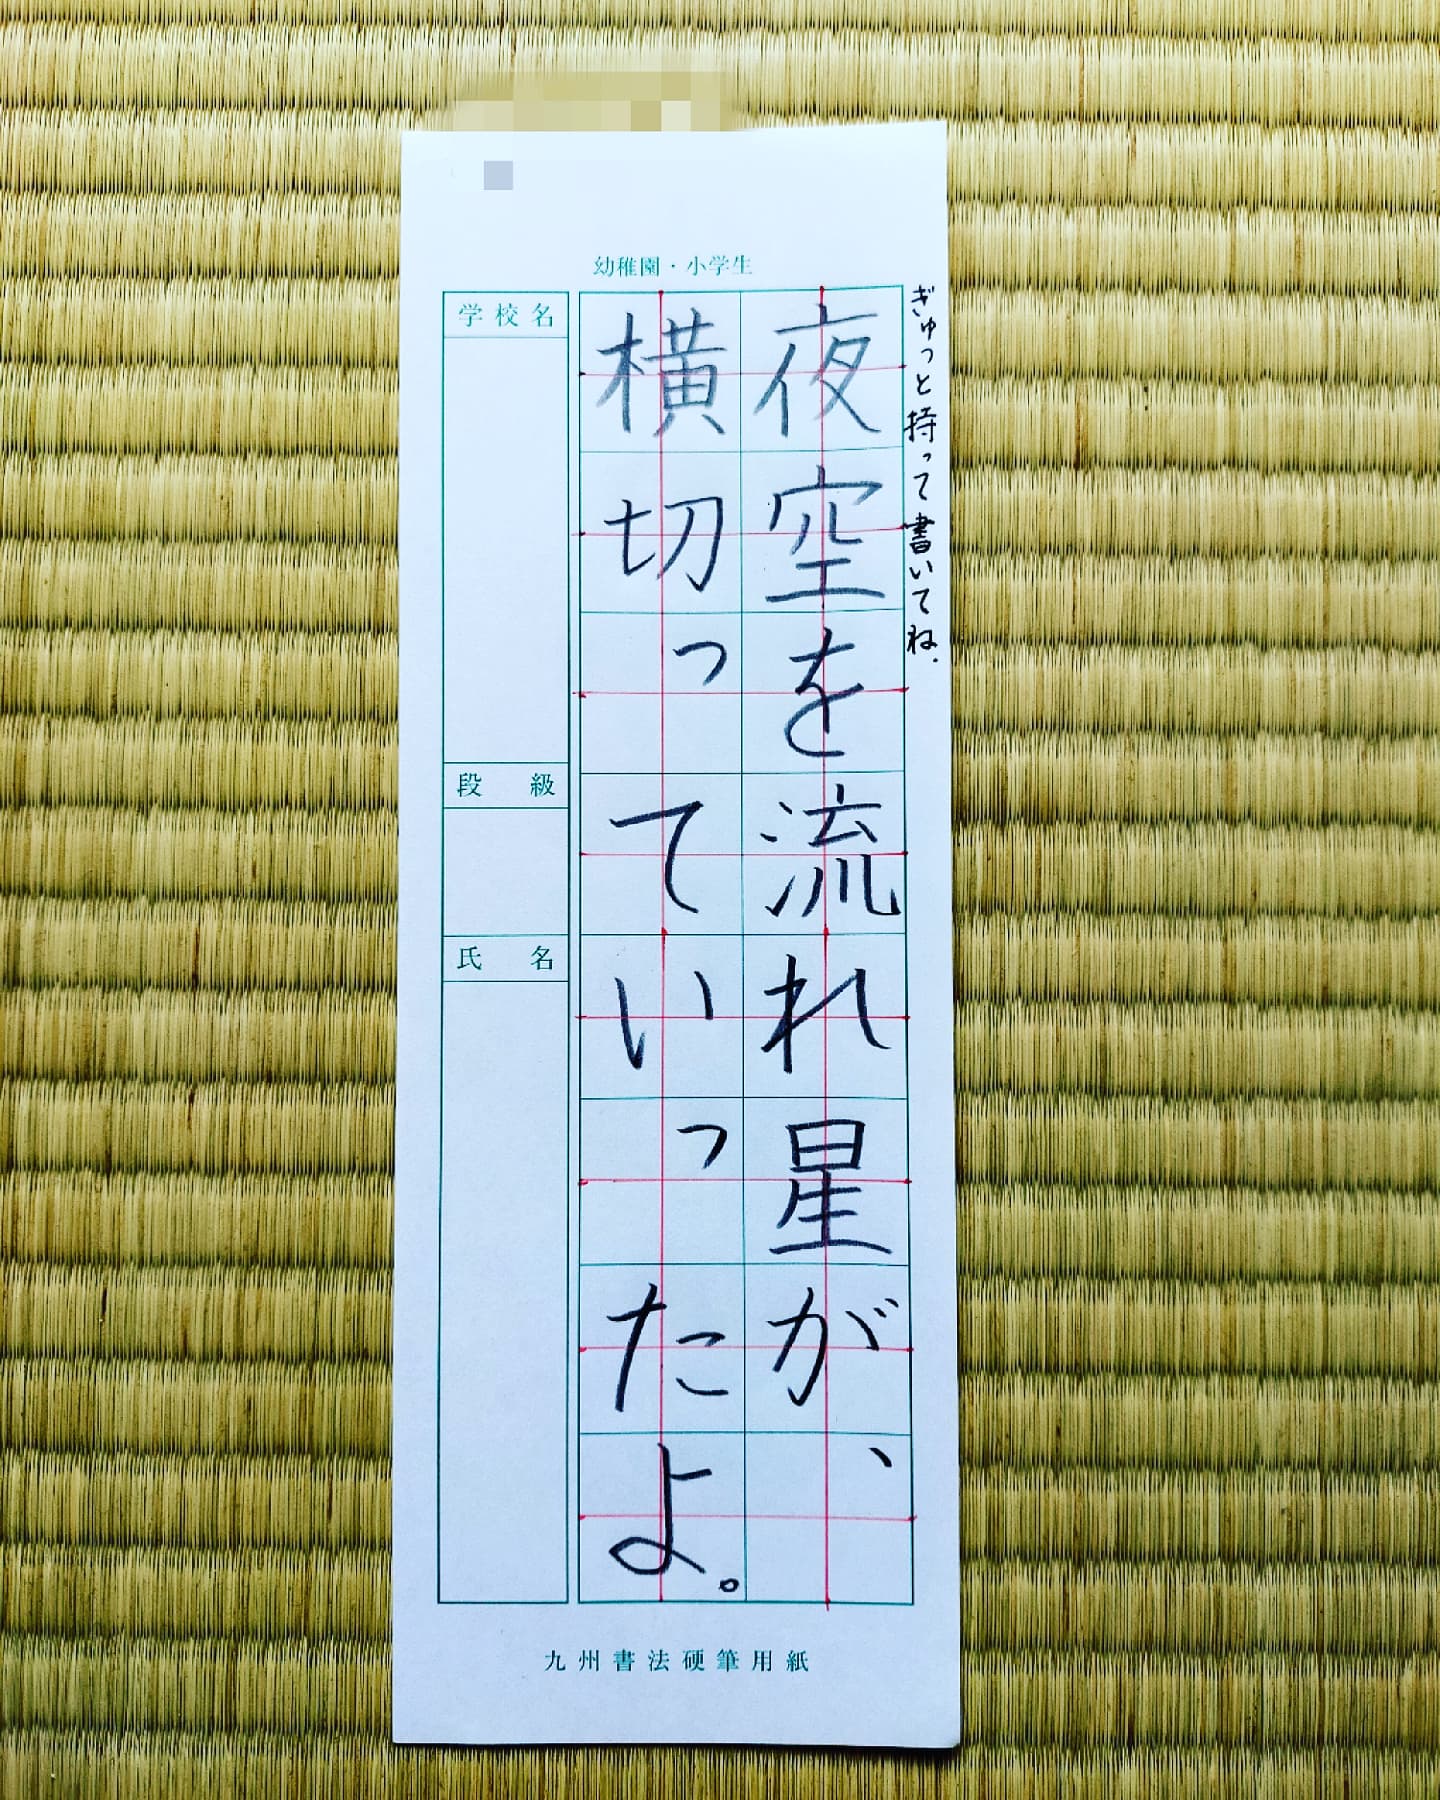 幼稚園・小学生
ぎゅっと持って書いてね.
夜空を流れ星が、
横切っていったよ。
学校名
段級
氏名
九州書法硬筆用紙